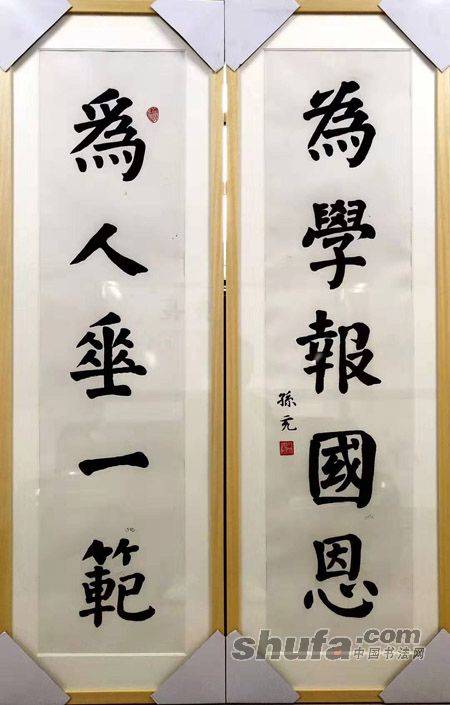 為學報國恩
孫
爲人垂一範
shufa.com
中国书法网